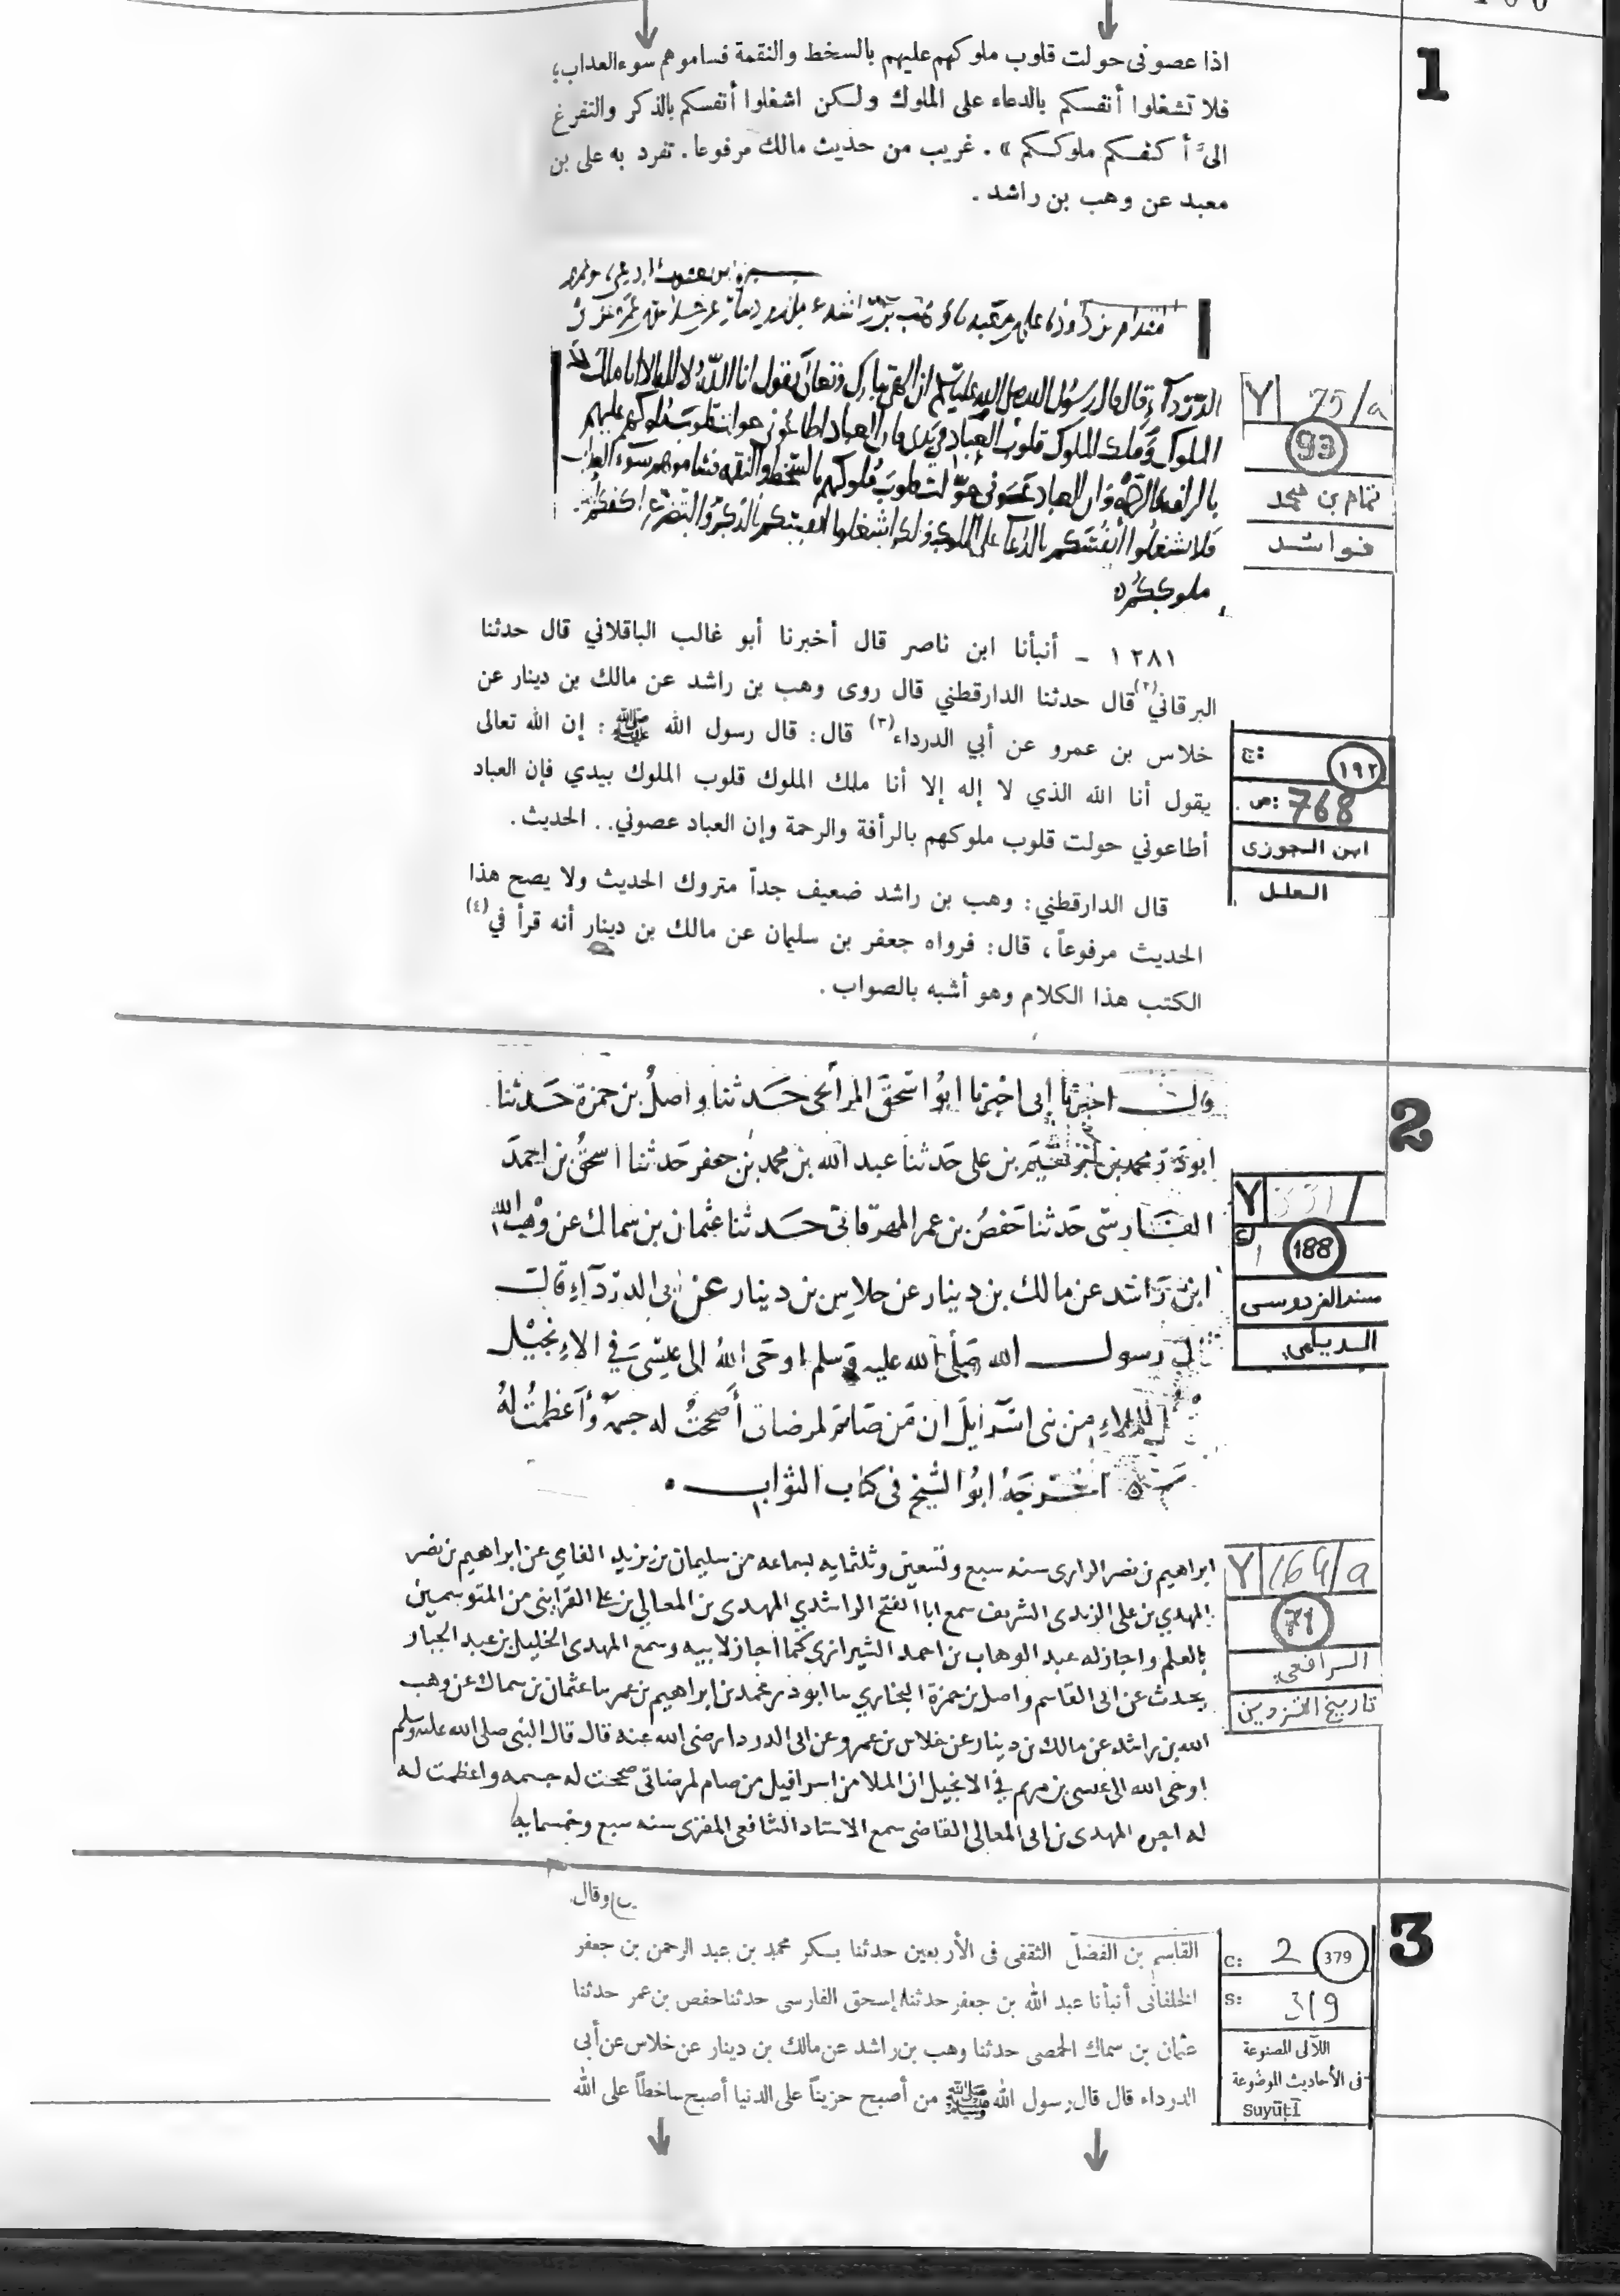 1
اذا عصونى حولت قلوب ملوكهم عليهم بالسخط والنقمة فساموهم سوء العذاب؛
فلا تشغلوا أنفسكم بالدعاء على الملوك ولكن اشغلوا أنفسكم بالذكر والتفرغ
الىّ أكفكم ملوككم » . غريب من حديث مالك مرفوعا . تفرد به على بن
معبد عن وهب بن راشد .
الدرداء قال قال رسول الله صلى الله عليه وسلم ان الله تبارك وتعالى يقول انا الله لا اله الا انا مالك
الملوك وملك الملوك قلوب الملوك بيدى وان العباد اطاعونى حولت قلوب ملوكهم عليهم
بالرافة والرحمة وان العباد عصونى حولت قلوب ملوكهم بالسخط والنقمة فساموهم سوء العذاب
فلا تشغلوا أنفسكم بالدعا على الملوك ولكن اشغلوا انفسكم بالذكر والتضرع اكفكم
ملوككم
Y 75/a
93
تمام بن محمد
فوائد
١٢٨١ - أنبأنا ابن ناصر قال أخبرنا أبو غالب الباقلاني قال حدثنا
البرقاني(٢) قال حدثنا الدارقطني قال روى وهب بن راشد عن مالك بن دينار عن
خلاس بن عمرو عن أبي الدرداء(٣) قال: قال رسول الله ﷺ : إن الله تعالى
يقول أنا الله الذي لا إله إلا أنا ملك الملوك قلوب الملوك بيدي فإن العباد
أطاعوني حولت قلوب ملوكهم بالرأفة والرحمة وإن العباد عصوني.. الحديث.
قال الدارقطني: وهب بن راشد ضعيف جداً متروك الحديث ولا يصح هذا
الحديث مرفوعاً، قال: فرواه جعفر بن سليمان عن مالك بن دينار أنه قرأ في(٤)
الكتب هذا الكلام وهو أشبه بالصواب.
ج: ١٩٢
ص: 768
ابن الجوزى
العلل
2
اخبرنا ابى اخبرنا ابو اسحق المراغى حدثنا واصل بن حمزة حدثنا
ابو ذر محمد بن بن على حدثنا عبد الله بن محمد بن جعفر حدثنا اسحق بن احمد
الفارسى حدثنا حفص بن عمر المهرقانى حدثنا عثمان بن سماك عن وهب الله
ابن راشد عن مالك بن دينار عن خلاس بن دينار عن ابى الدرداء قال
رسول الله صلى الله عليه وسلم اوحى الله الى عيسى فى الانجيل
للملاء من بنى اسرايل ان من صام لمرضاتى أصححت له جسمه وأعظمت له
اخرجه ابو الشيخ فى كتاب الثواب
Y 331/
188
مسند الفردوسى
الديلمى
ابراهيم بن نصر الرازى سنه سبع وتسعين وثلثمايه بسماعه من سليمان بن يزيد الفامي عن ابراهيم بن نصر
المهدي بن على الزيدى الشريف سمع ابا الفتح الراشدي المهدى بن المعالي بن على القرايى من المتوسمين
بالعلم واجاز له عبد الوهاب بن احمد الشيرازى كما اجاز لابيه وسمع المهدى الخليل بن عبد الجبار
يحدث عن ابى القاسم واصل بن حمزة البخاري سا ابو ذر محمد بن ابراهيم بن عمر سا عثمان بن سماك عن وهب
الله بن راشد عن مالك بن دينار عن خلاس بن عمرو عن ابى الدردا رضى الله عنه قال قال النبى صلى الله عليه وسلم
اوحى الله الى عيسى بن مريم في الانجيل ان الملا من اسرافيل من صام لمرضاتى صححت له جسمه واعظمت له
له اجره المهدى بن ابى المعالى القاضى سمع الاستاد الشافعى المقرى سنه سبع وخمسمايه
Y 164/a
71
الرافعى
تاريخ القزوين
3
وقال
القاسم بن الفضل الثقفى فى الأربعين حدثنا بسكر محمد بن عبد الرحمن بن جعفر
الخلقانى أنبأنا عبد الله بن جعفر حدثنا إسحق الفارسى حدثنا حفص بن عمر حدثنا
عثمان بن سماك الحمصى حدثنا وهب بن راشد عن مالك بن دينار عن خلاس عن أبى
الدرداء قال قال رسول الله ﷺ من أصبح حزيناً على الدنيا أصبح ساخطاً على الله
C: 2 379
S: 319
اللآلى المصنوعة
فى الأحاديث الموضوعة
Suyūṭī